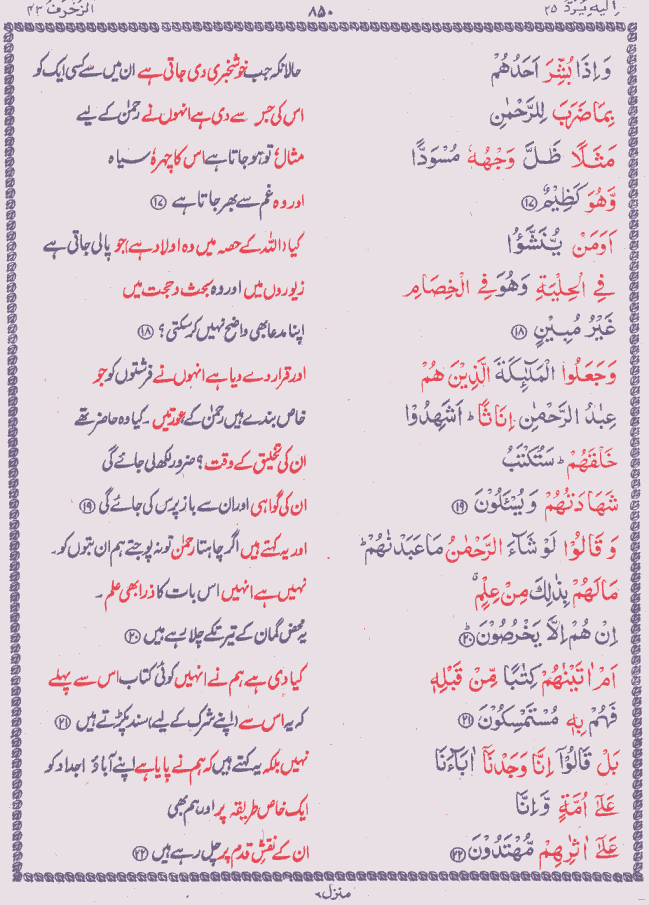 اِلَيْهِ يُرَدُّ ٢٥ ٨٥٠ الزُّخْرُف ٤٣
وَاِذَا بُشِّرَ اَحَدُهُمْ حالانکہ جب خوشخبری دی جاتی ہے ان میں سے کسی ایک کو
بِمَا ضَرَبَ لِلرَّحْمٰنِ اس کی جس سے دی ہے انہوں نے رحمٰن کے لیے
مَثَلًا ظَلَّ وَجْهُهٗ مُسْوَدًّا مثال، تو ہو جاتا ہے اس کا چہرہ سیاہ
وَّهُوَ كَظِيْمٌ ⑰ اور وہ غم سے بھر جاتا ہے ⑰
اَوَمَنْ يُّنَشَّؤُا کیا (اللہ کے حصہ میں وہ اولاد ہے) جو پالی جاتی ہے
فِي الْحِلْيَةِ وَهُوَ فِي الْخِصَامِ زیوروں میں اور وہ بحث و حجت میں
غَيْرُ مُبِيْنٍ ⑱ اپنا مدعا بھی واضح نہیں کر سکتی؟ ⑱
وَجَعَلُوا الْمَلٰٓئِكَةَ الَّذِيْنَ هُمْ اور قرار دے دیا ہے انہوں نے فرشتوں کو جو
عِبٰدُ الرَّحْمٰنِ اِنَاثًا ؕ اَشَهِدُوْا خاص بندے ہیں رحمٰن کے عورتیں۔ کیا وہ حاضر تھے
خَلْقَهُمْ ؕ سَتُكْتَبُ ان کی تخلیق کے وقت؟ ضرور لکھ لی جائے گی
شَهَادَتُهُمْ وَيُسْئَلُوْنَ ⑲ ان کی گواہی اور ان سے باز پرس کی جائے گی ⑲
وَقَالُوْا لَوْ شَآءَ الرَّحْمٰنُ مَا عَبَدْنٰهُمْ ؕ اور یہ کہتے ہیں اگر چاہتا رحمٰن تو نہ پوجتے ہم ان بتوں کو۔
مَا لَهُمْ بِذٰلِكَ مِنْ عِلْمٍ ۗ نہیں ہے انہیں اس بات کا ذرا بھی علم۔
اِنْ هُمْ اِلَّا يَخْرُصُوْنَ ⑳ یہ محض گمان کے تیر تکے چلا رہے ہیں ⑳
اَمْ اٰتَيْنٰهُمْ كِتٰبًا مِّنْ قَبْلِهٖ کیا دی ہے ہم نے انہیں کوئی کتاب اس سے پہلے
فَهُمْ بِهٖ مُسْتَمْسِكُوْنَ ㉑ کہ یہ اس سے (اپنے شرک کے لیے) سند پکڑتے ہیں ㉑
بَلْ قَالُوْٓا اِنَّا وَجَدْنَآ اٰبَآءَنَا نہیں بلکہ یہ کہتے ہیں کہ ہم نے پایا ہے اپنے آباؤ اجداد کو
عَلٰٓى اُمَّةٍ وَّاِنَّا ایک خاص طریقہ پر اور ہم بھی
عَلٰٓى اٰثٰرِهِمْ مُّهْتَدُوْنَ ㉒ ان کے نقشِ قدم پر چل رہے ہیں ㉒
منزل ٦